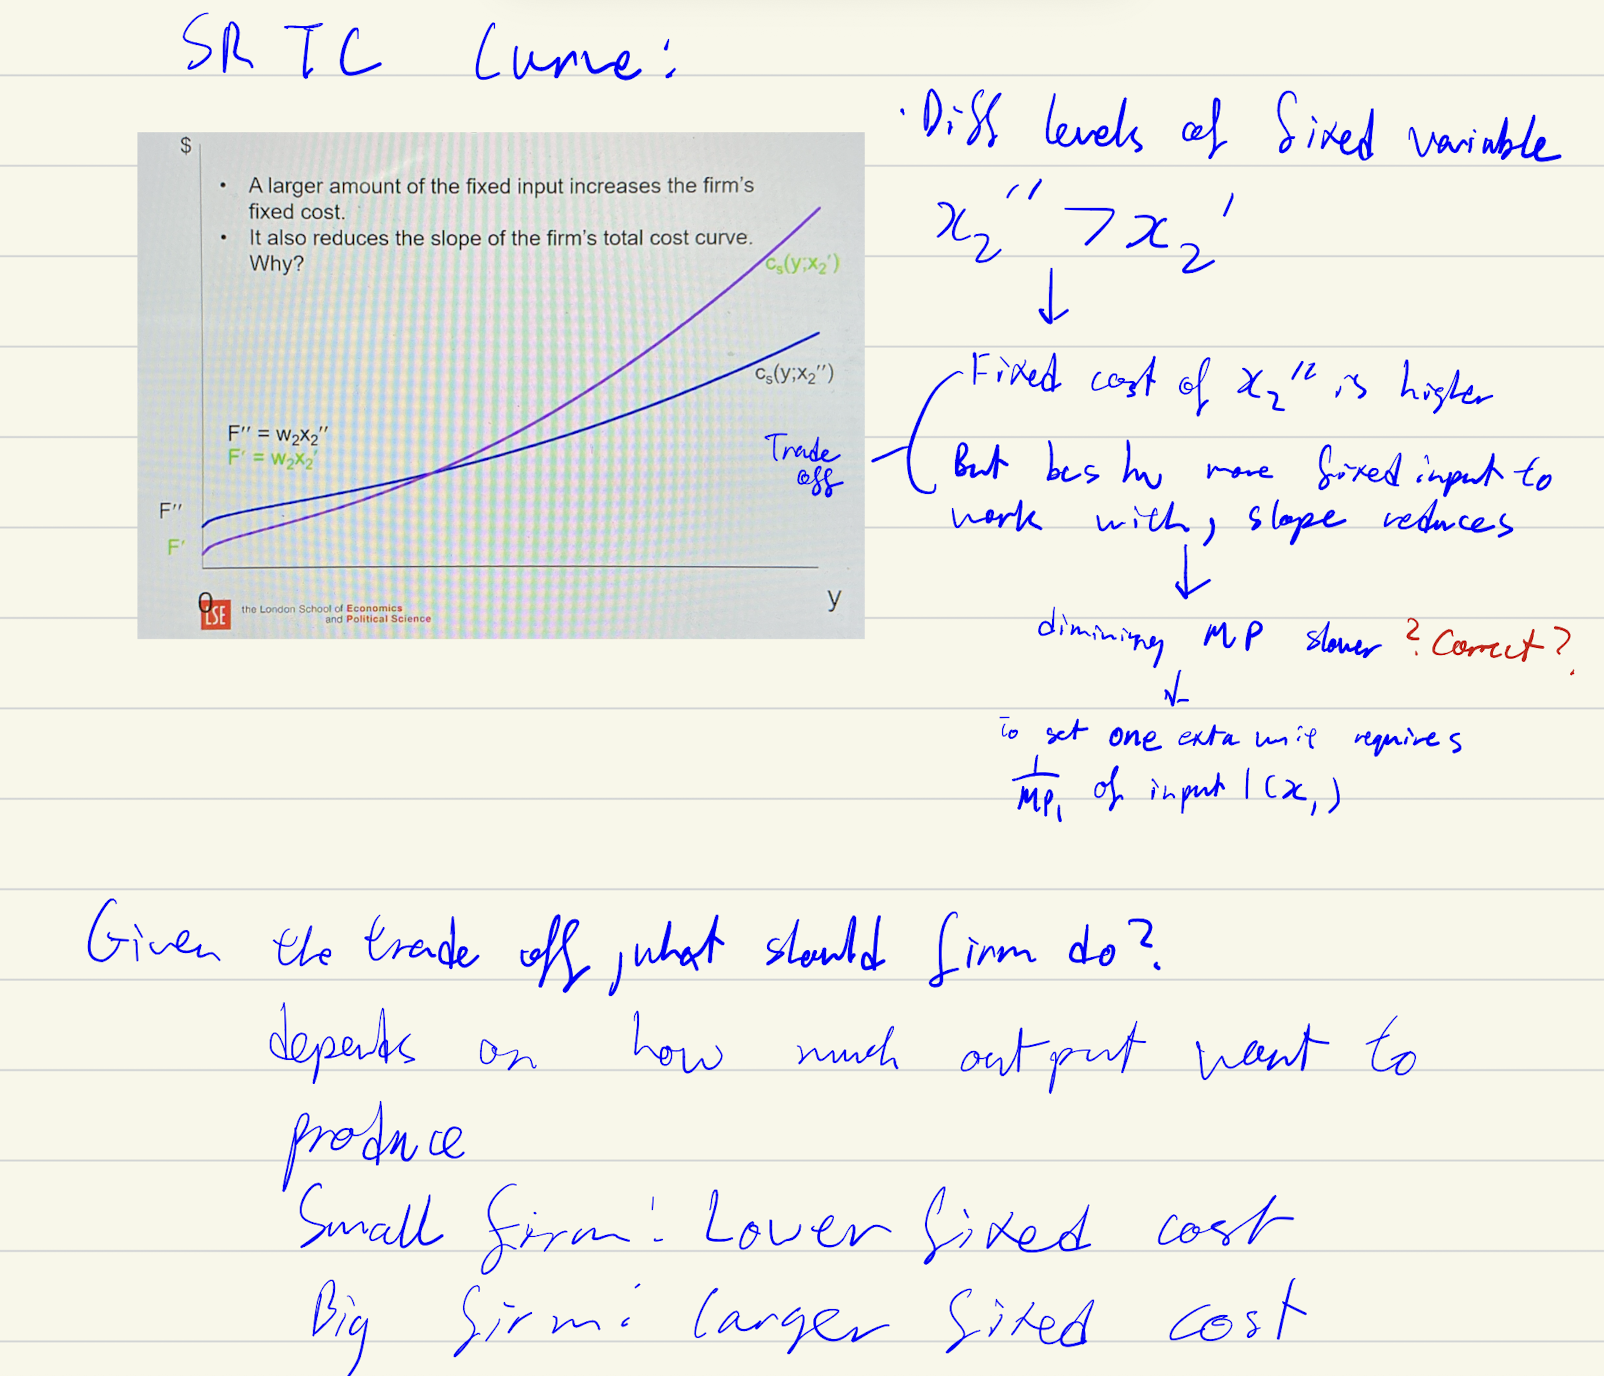 SR TC Curve:
$
• A larger amount of the fixed input increases the firm's
fixed cost.
• It also reduces the slope of the firm's total cost curve.
Why?
cs(y;x2')
cs(y;x2'')
F'' = w2x2''
F' = w2x2'
F''
F'
0
y
LSE the London School of Economics
and Political Science
· Diff levels of fixed variable
x2'' > x2'
↓
Fixed cost of x2'' is higher
Trade
off
But bcs hv more fixed input to
work with, slope reduces
↓
MP slower ? Correct?
↓
To get one exta unit requires
1/MP1 of input 1 (x1)
Given the trade off, what should firm do?
depends on how much output want to
produce
Small firm: Lower fixed cost
Big firm: larger fixed cost